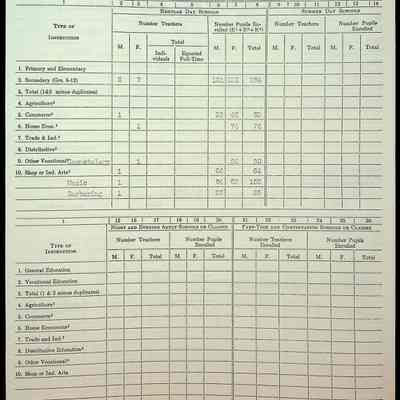 1 2 3 4 5 6 7 8 9 10 11 12 13 14
REGULAR DAY SCHOOLS SUMMER DAY SCHOOLS
TYPE OF INSTRUCTION Number Teachers Number Pupils Enrolled Number Teachers Number Pupils Enrolled
M. F. Total M. F. Total M. F. Total M. F. Total
Individuals Equated Full-Time
1. Primary and Elementary
2. Secondary (Grs. 8-12)
3. Total (1&2 minus duplicates)
4. Agriculture
5. Commerce 1
6. Home Econ. 1 76 76
7. Trade & Ind.
8. Distributive
9. Other Vocational Cosmetology 1
10. Shop or Ind. Arts 1
Music 1
Barbering 1
1 15 16 17 18 19 20 21 22 23 24 25 26
NIGHT AND EVENING ADULT SCHOOLS OR CLASSES PART-TIME AND CONTINUATION SCHOOLS OR CLASSES
TYPE OF INSTRUCTION Number Teachers Number Pupils Enrolled Number Teachers Number Pupils Enrolled
M. F. Total M. F. Total M. F. Total M. F. Total
1. General Education
2. Vocational Education
3. Total (1 & 2 minus duplicates)
4. Agriculture
5. Commerce
6. Home Economics
7. Trade and Ind.
8. Distributive Education
9. Other Vocational
10. Shop or Ind. Arts